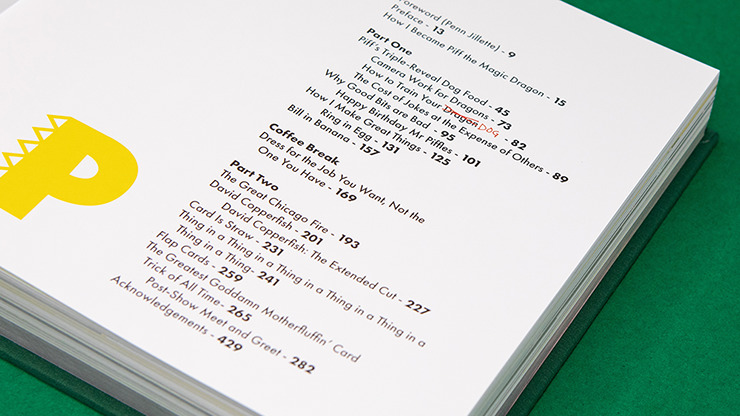 Foreword (Penn Jillette) - 9
Preface - 13
How I Became Piff the Magic Dragon - 15
Part One
Piff's Triple-Reveal Dog Food - 45
Camera Work for Dragons - 73
How to Train Your Dragon DOG - 82
The Cost of Jokes at the Expense of Others - 89
Why Good Bits are Bad - 95
Happy Birthday Mr Piffles - 101
How I Make Great Things - 125
Ring in Egg - 131
Bill in Banana - 157
Coffee Break
Dress for the Job You Want, Not the
One You Have - 169
Part Two
The Great Chicago Fire - 193
David Copperfish - 201
David Copperfish: The Extended Cut - 227
Card Is Straw - 231
Thing in a Thing in a Thing in a Thing in a Thing in a
Thing in a Thing- 241
Flap Cards - 259
The Greatest Goddamn Motherfluffin' Card
Trick of All Time - 265
Post-Show Meet and Greet - 282
Acknowledgements - 429
P